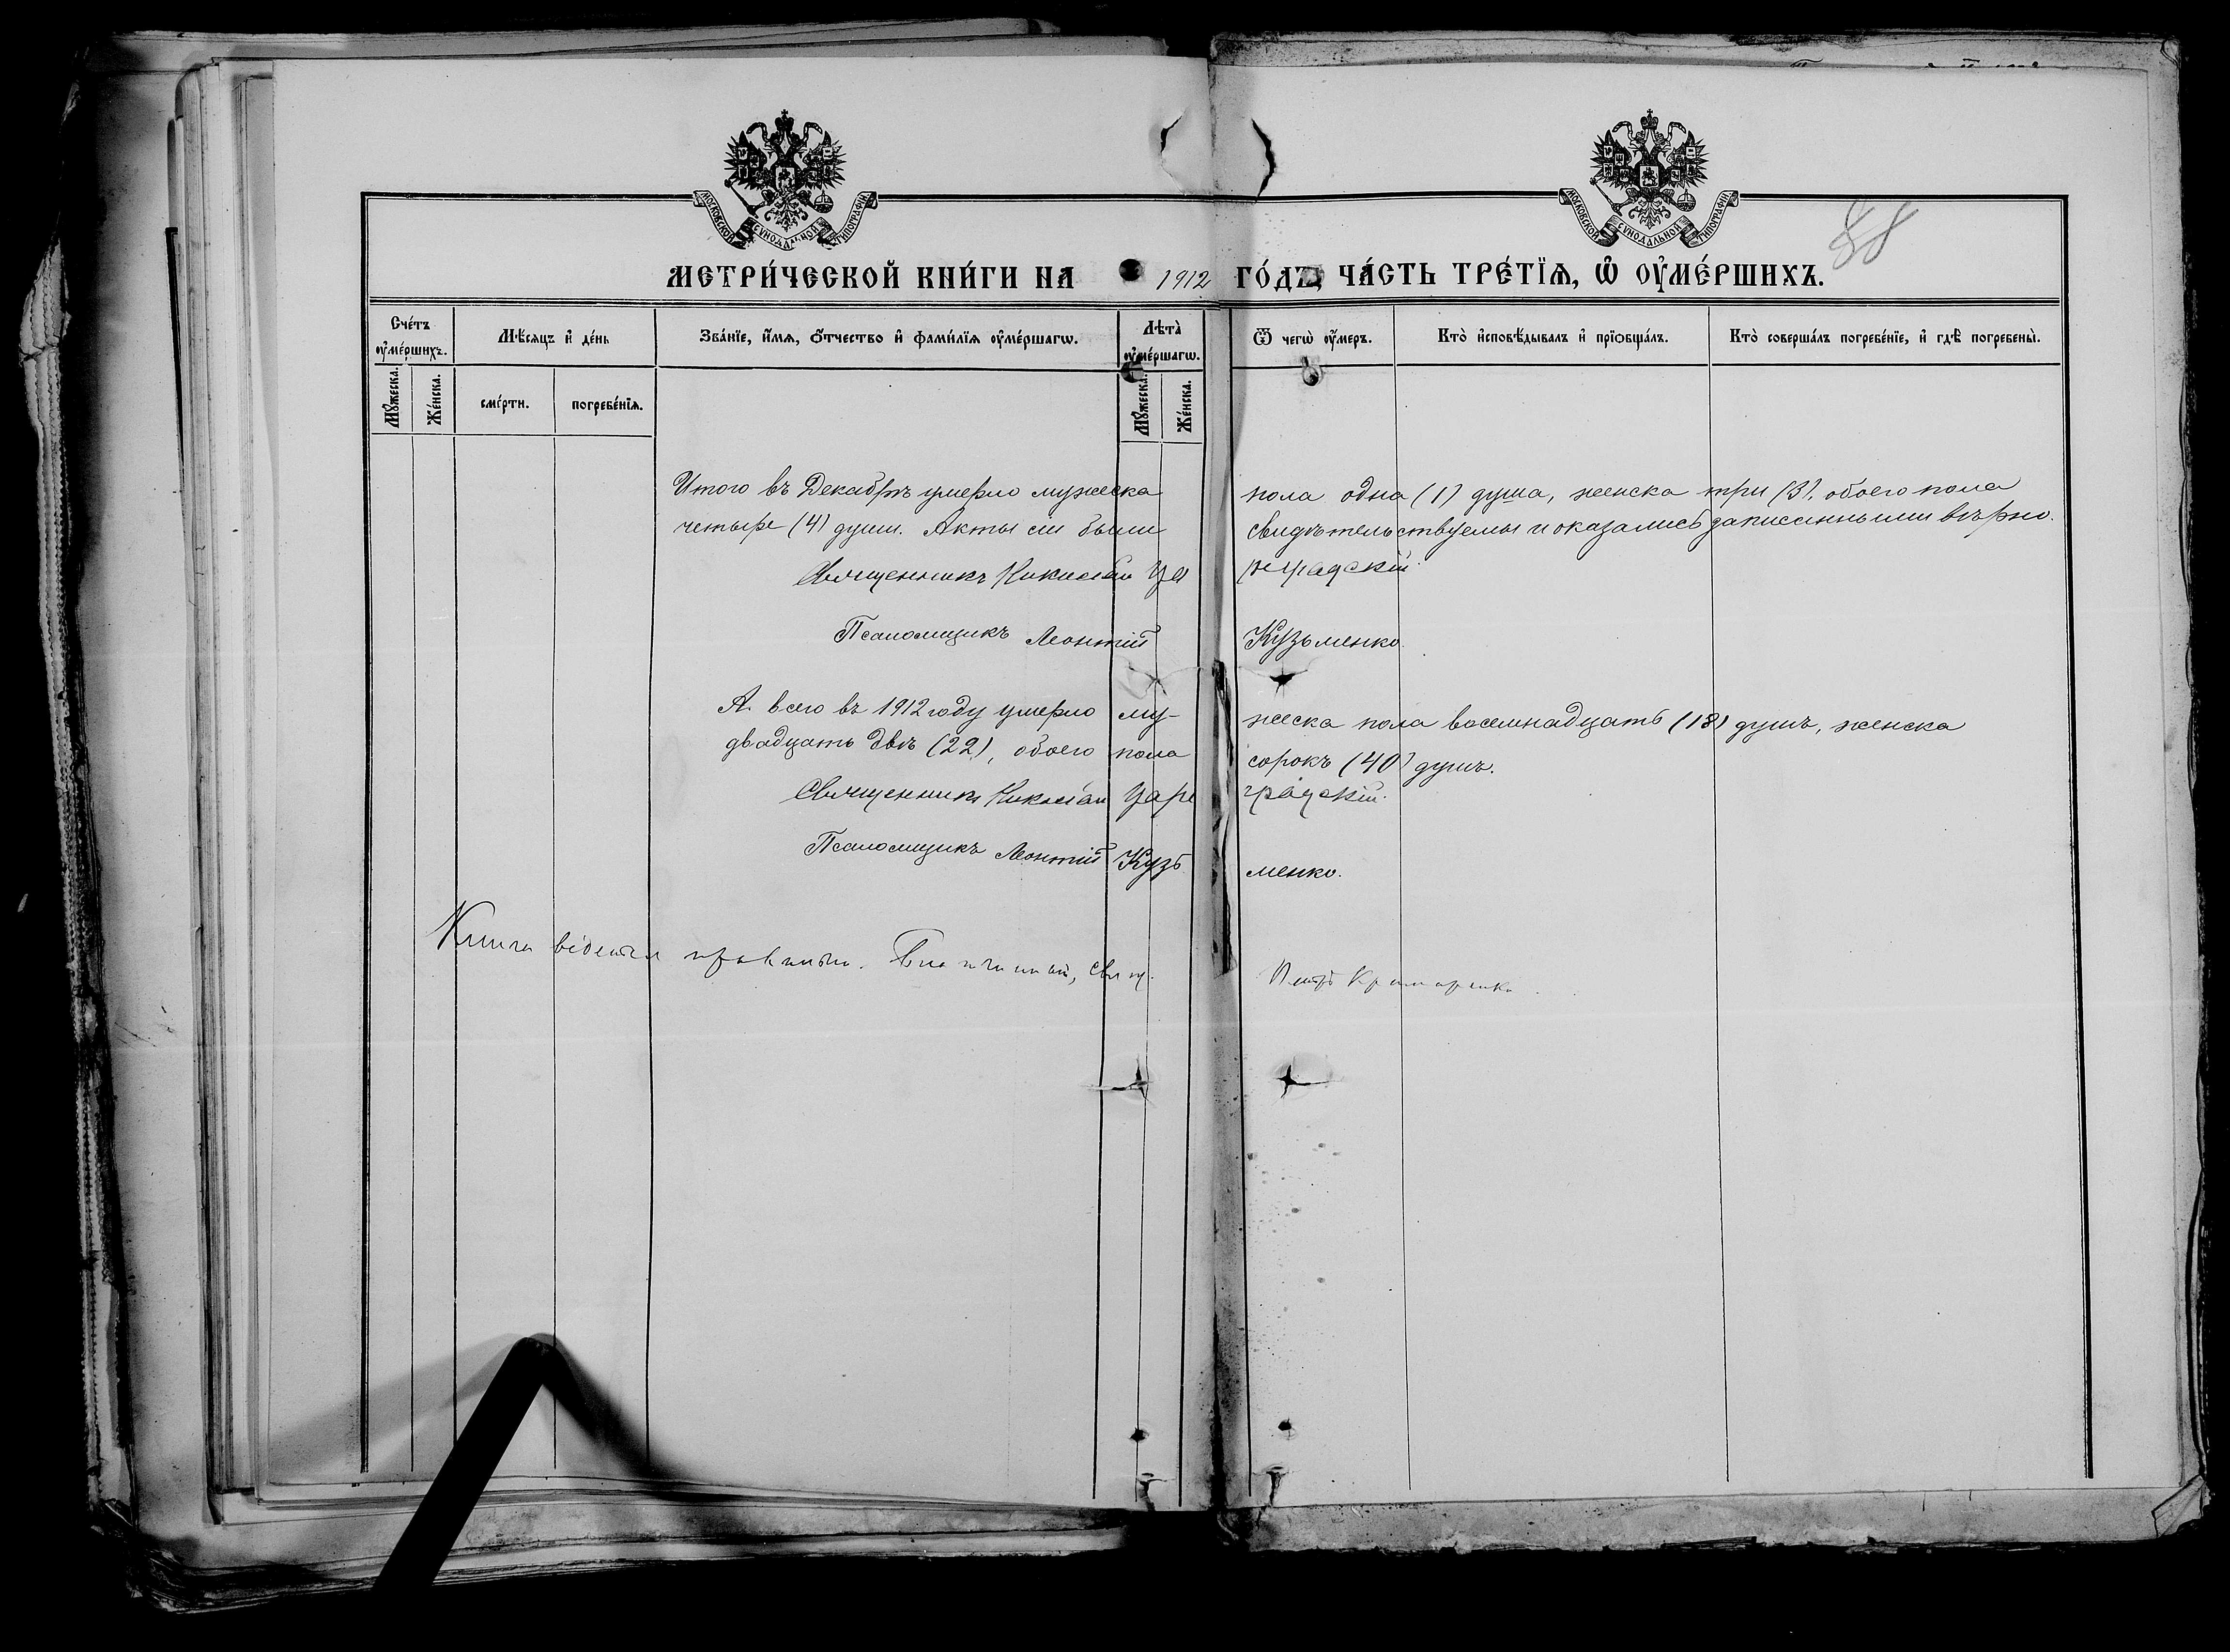 МОСКОВСКОЙ СѴНОДАЛЬНОЙ ТИПОГРАФІИ
МОСКОВСКОЙ СѴНОДАЛЬНОЙ ТИПОГРАФІИ
88
МЕТРИ́ЧЕСКОЙ КНИ́ГИ НА 1912 ГО́ДЪ, ЧА́СТЬ ТРЕ́ТІѦ, Ѡ҆ ОУ҆МЕ́РШИХЪ.
Сче́тъ оу҆ме́ршихъ.
Мѣ́сяцъ и҆ де́нь
Зва́нїе, и҆́мѧ, ѻ҆́тчество и҆ фами́лїѧ оу҆ме́ршагѡ.
Лѣта̀ оу҆ме́ршагѡ.
Ѿ чегѡ̀ оу҆́меръ.
Кто̀ и҆сповѣ́дывалъ и҆ прїѡбща́лъ.
Кто̀ соверша́лъ погребе́нїе, и҆ гдѣ̀ погребены̀.
Мꙋ́жеска.
Же́нска.
сме́рти.
погребе́нїѧ.
Мꙋ́жеска.
Же́нска.
Итого въ Декабрѣ умерло мужеска пола одна (1) душа, женска три (3). обоего пола
четыре (4) души. Акты сіи были свидѣтельствуемы и оказались записанными вѣрно.
Священникъ Николай Цареградскій.
Псаломщикъ Леонтій Кузьменко.
А всего въ 1912 году умерло мужеска пола восемнадцать (18) душъ, женска
двадцать двѣ (22), обоего пола сорокъ (40) душъ.
Священникъ Николай Цареградскій.
Псаломщикъ Леонтій Кузьменко.
Книга ведется правильно. Благочинный, свящ. Петръ